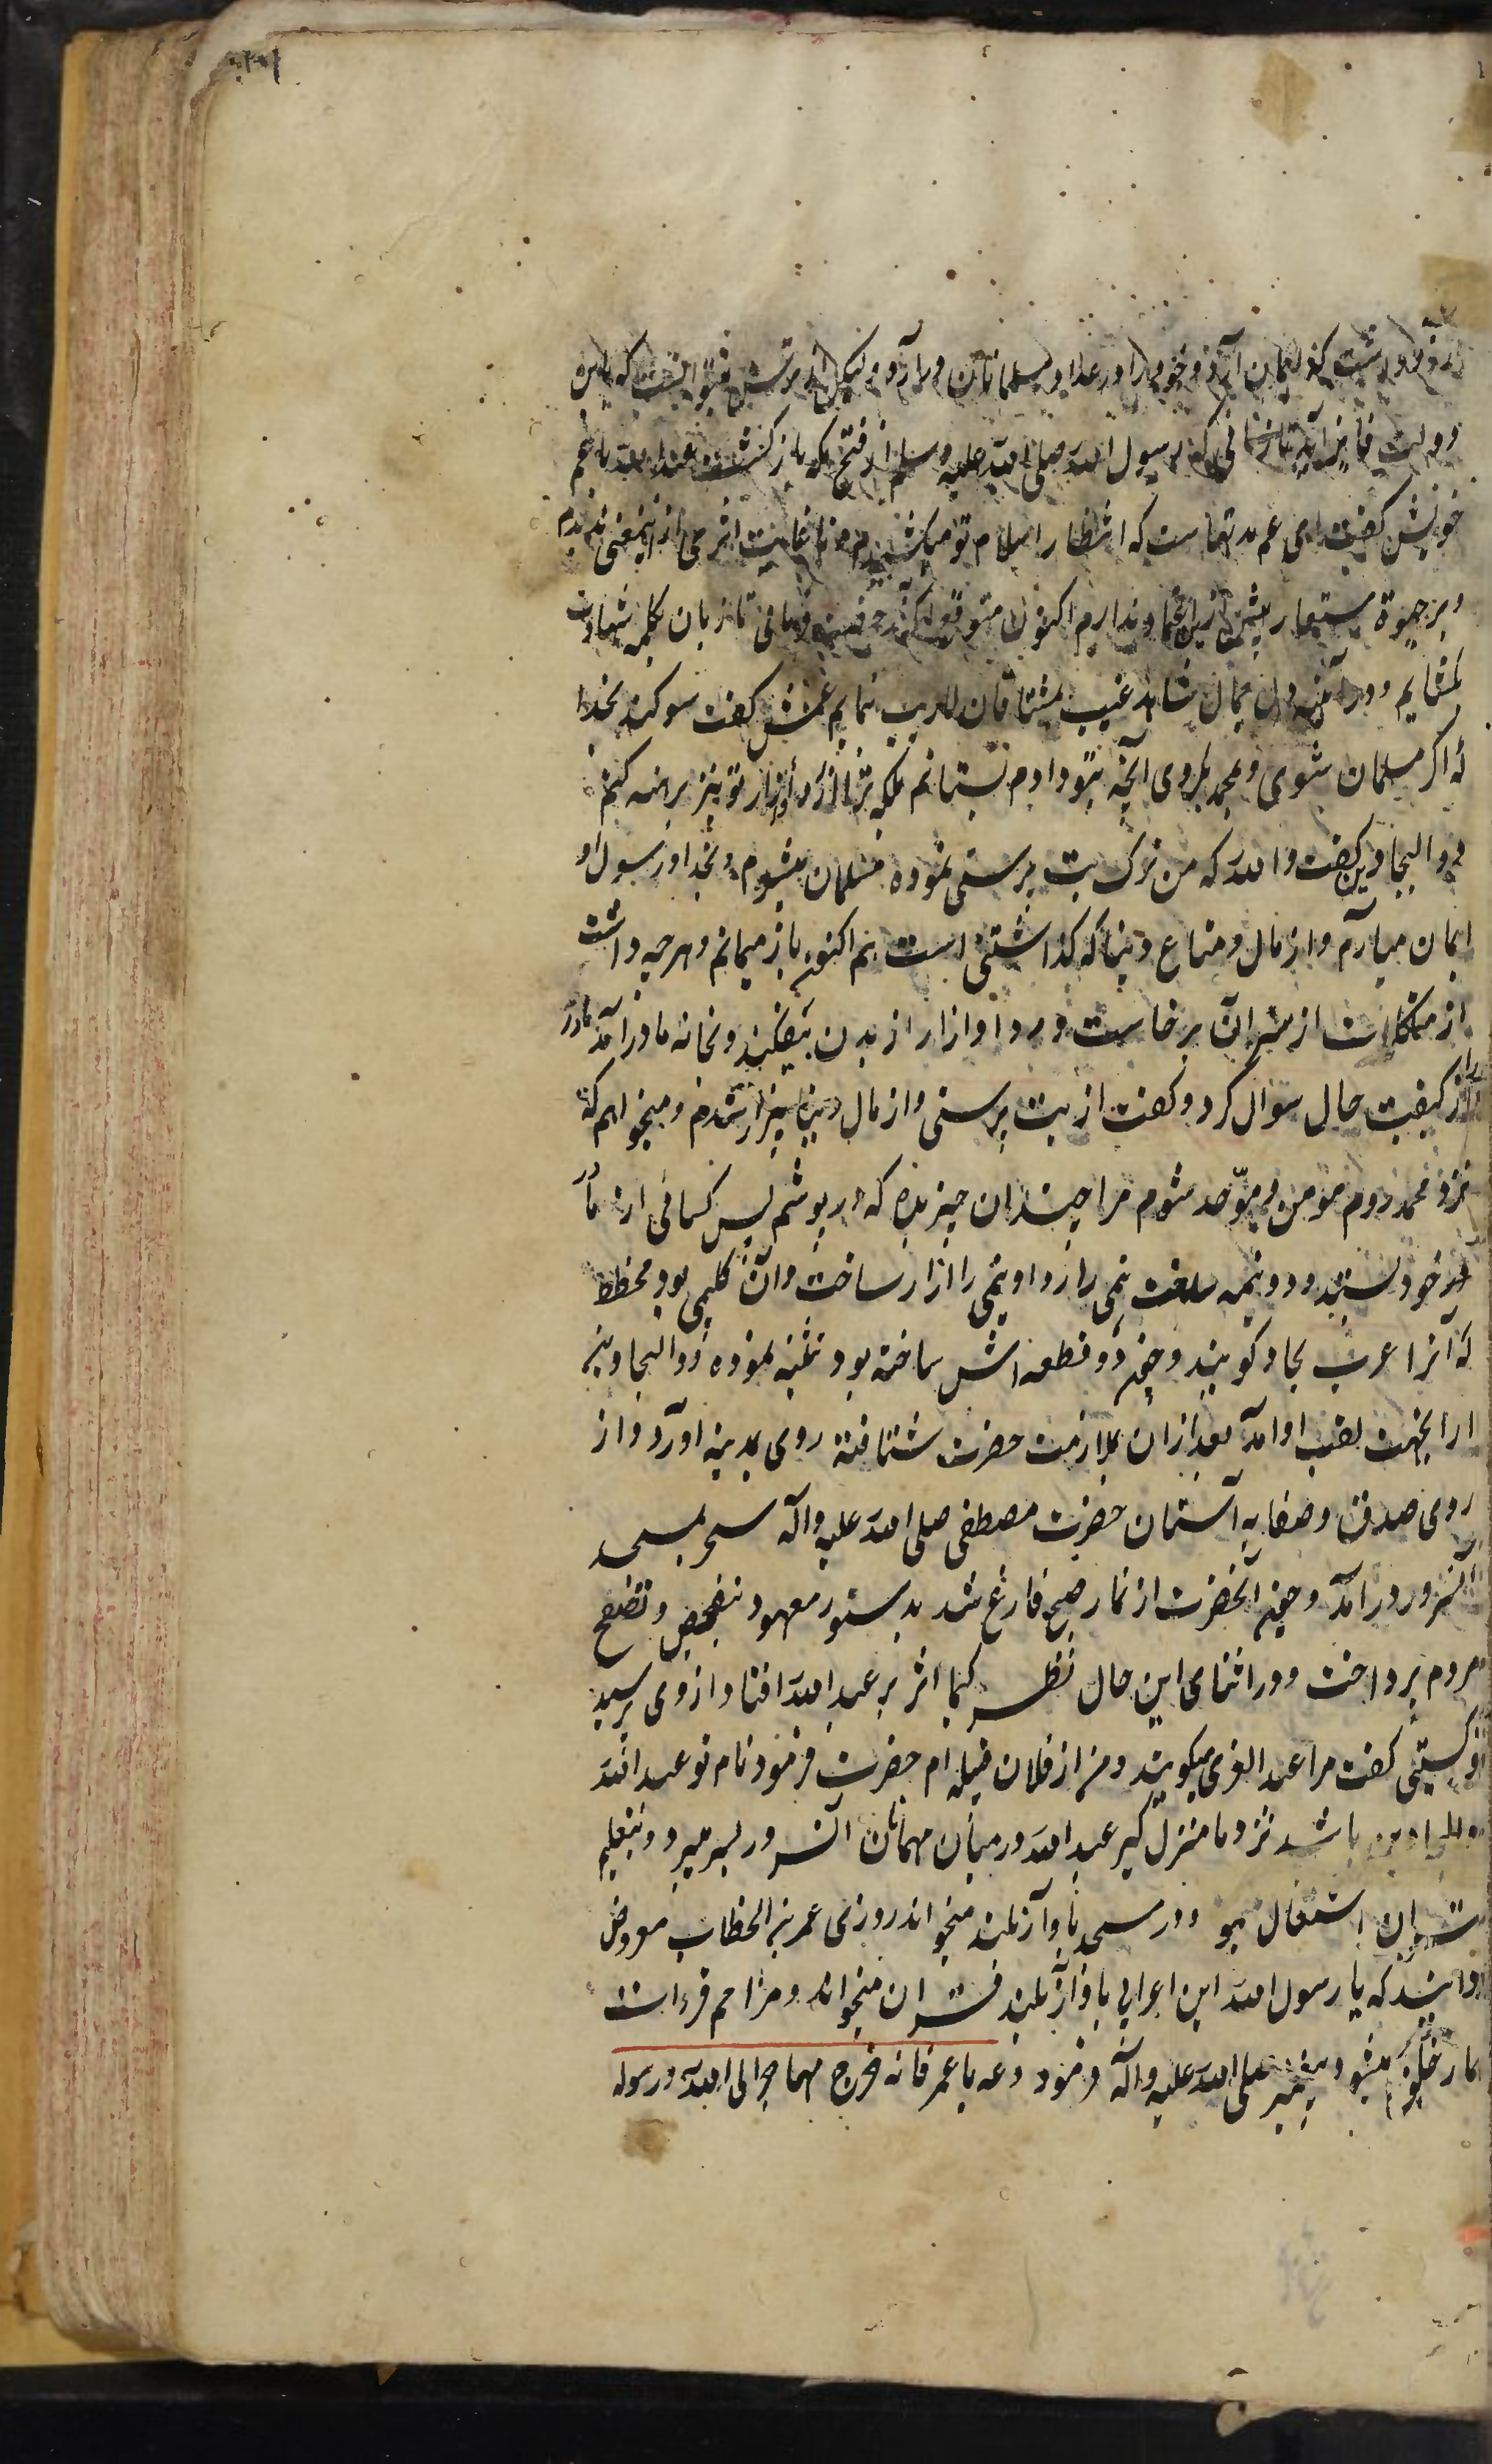 که ایمان آرد و خود را در عداد مسلمانان در آرد و لیکن از ترس عم نمیتوانست که باین
دولت فایز آید تا زمانی که رسول الله صلی الله علیه وسلم از فتح مکه بازگشت عبد الله با عم
خویش گفت ای عم مدتهاست که انتظار اسلام تو میکشیدم و تا غایت اثری از اینمعنی ندیدم
و بر حیوة مستعار بیش ازین اعتماد ندارم اکنون متوقع آنکه رخصت فرمائی تا زبان بکلمه شهادت
بگشایم و در آئینه دل جمال شاهد غیب بمشتاقان لاریب نمایم عمش گفت سوگند بخدا
که اگر مسلمان شوی و بمحمد بگروی آنچه بتو دادم بستانم بلکه ترا از ردا و ازار تو نیز برهنه کنم
ذو البجادین گفت والله که من ترک بت پرستی نموده مسلمان میشوم و بخدا و رسول او
ایمان میارم و از مال و متاع دنیا که گذاشتنی است هم اکنون باز میمانم و هرچه داشت
از متملکات از سر آن برخاست و ردا و ازار از بدن بیفکند و بخانه مادر آمد مادر
از کیفیت حال سوال کرد و گفت از بت پرستی و از مال دنیا بیزار شدم و میخواهم که
نزد محمد روم مومن و موحد شوم مرا چندان چیز بده که در پوشم پس کسائی از مادر
خود ستید و دو نیمه ساخت نیمی را ردا و نیمی را ازار ساخت و آن گلیمی بود مخطط
که آنرا عرب بجاد گویند و چون دو قطعه اش ساخته بود تثنیه نموده ذو البجادین
ازینجهت لقب او آمد بعد ازان بملازمت حضرت شتافته روی بمدینه آورد و از
روی صدق و صفا به آستان حضرت مصطفی صلی الله علیه وآله سحر بمسجد
آنسرور درآمد و چون آنحضرت از نماز صبح فارغ شد بدستور معهود بتفحص و تصفح
مردم پرداخت و در اثنای این حال نظر کیمیا اثر بر عبد الله افتاد از وی پرسید
تو کیستی گفت مرا عبد العزی میگویند و من از فلان قبیله ام حضرت فرمود نام تو عبد الله
ذو البجادین باشد نزد ما منزل گیر عبد الله در میان مهمانان آنسرور بسر میبرد و بتعلیم
قران اشتغال مینمود و در مسجد بآواز بلند میخواند روزی عمر بن الخطاب معروض
گردانید که یا رسول الله این اعرابی بآواز بلند قران میخواند و مزاحم قراءت
نماز خلق میشود پیغمبر صلی الله علیه وآله فرمود دعه یا عمر فانه خرج مهاجرا الی الله ورسوله